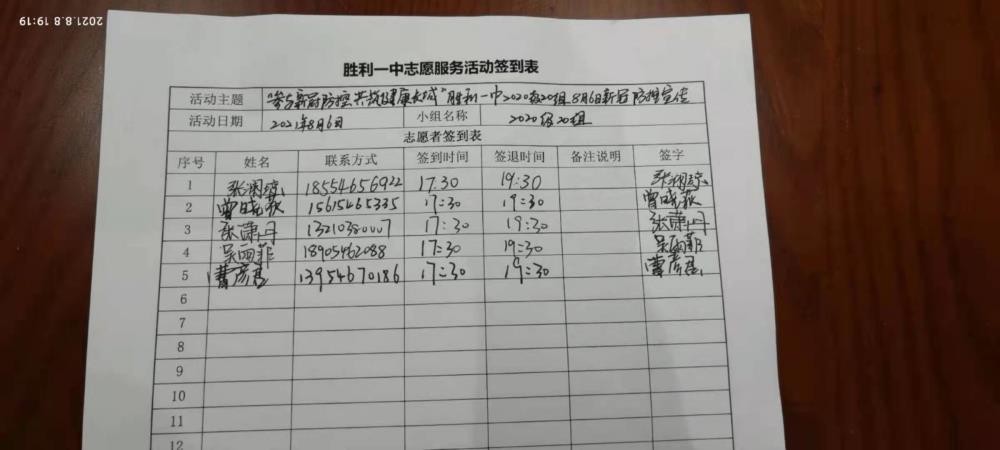 2021.8.8 19:19
胜利一中志愿服务活动签到表
活动主题 "参与新冠防控 共筑健康长城"胜利一中2020级20组 8月6日新冠防控宣传
活动日期 2021年8月6日 小组名称 2020级20组
志愿者签到表
序号 姓名 联系方式 签到时间 签退时间 备注说明 签字
1 张 18554656922 17:30 19:30 张
2 曾晓 15615465335 17:30 19:30 曾晓
3 张潇丹 13210380007 17:30 19:30 张潇丹
4 吴雨菲 18905462088 17:30 19:30 吴雨菲
5 曹彦 13954670186 17:30 19:30 曹彦
6
7
8
9
10
11
12